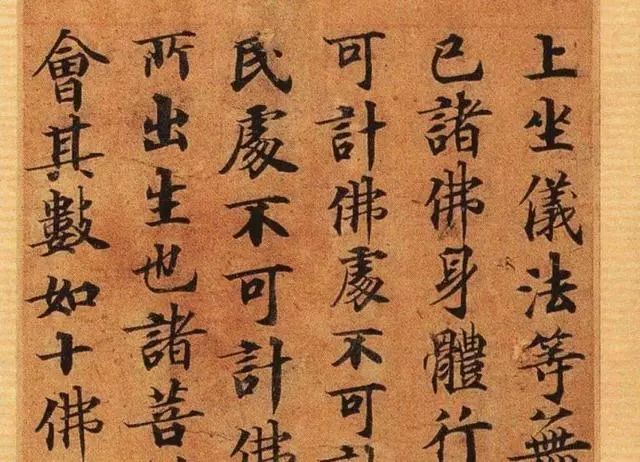 上坐儀法等無
已諸佛身體行
可計佛處不可計
民處不可計佛
所出生也諸菩
會其數如十佛